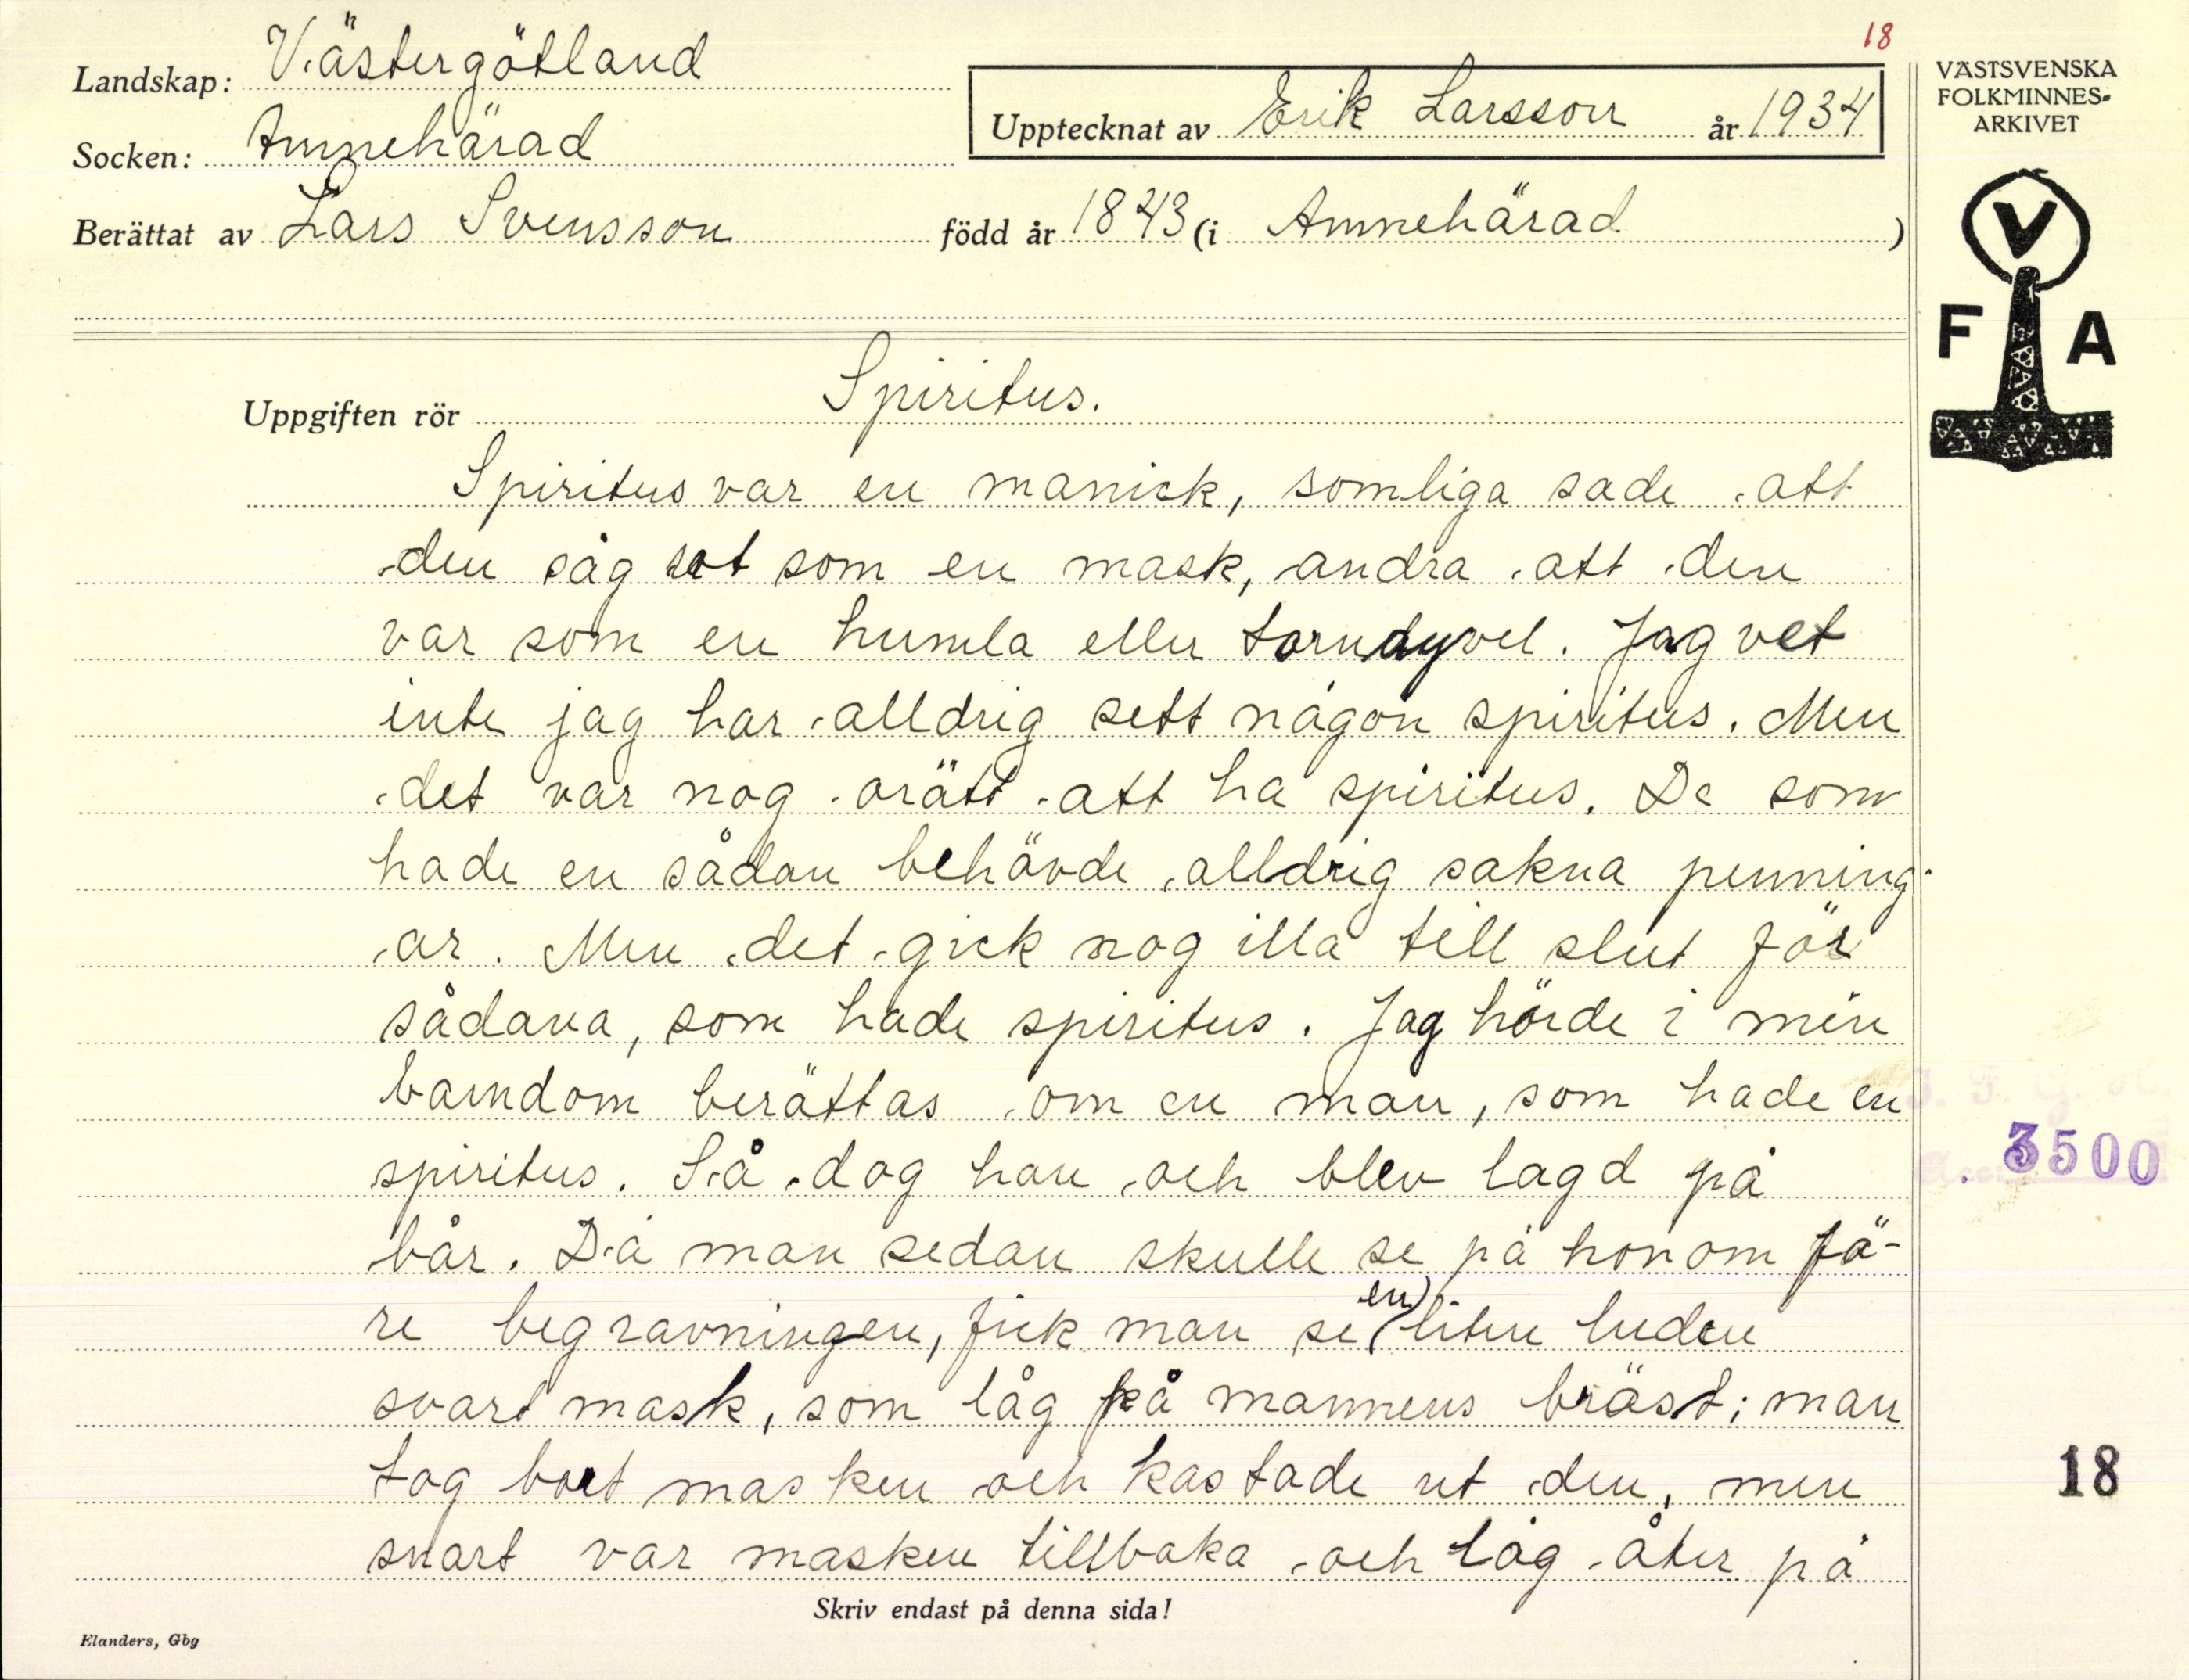 18
Landskap: Västergötland
Socken: Amnehärad
Upptecknat av Erik Larsson år 1934
Berättat av Lars Svensson född år 1843 (i Amnehärad )
VÄSTSVENSKA
FOLKMINNES-
ARKIVET
V
F A
Uppgiften rör Spiritus.
Spiritus var en manick, somliga sade att
den såg ut som en mask, andra att den
var som en humla eller torndyvel. Jag vet
inte jag har alldrig sett någon spiritus. Men
det var nog orätt att ha spiritus. De som
hade en sådan behövde alldrig sakna penning-
ar. Men det gick nog illa till slut för
sådana, som hade spiritus. Jag hörde i min
barndom berättas om en man, som hade en
spiritus. Så dog han och blev lagd på
bår. Då man sedan skulle se på honom fö-
re begravningen, fick man se en liten luden
svart mask, som låg på mannens bräst; man
tog bort masken och kastade ut den, men
snart var masken tillbaka och låg åter på
3500
18
Skriv endast på denna sida!
Elanders, Gbg